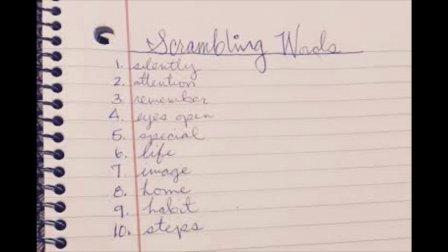 Scrambling Words
1. silently
2. attention
3. remember
4. eyes open
5. special
6. life
7. image
8. home
9. habit
10. steps